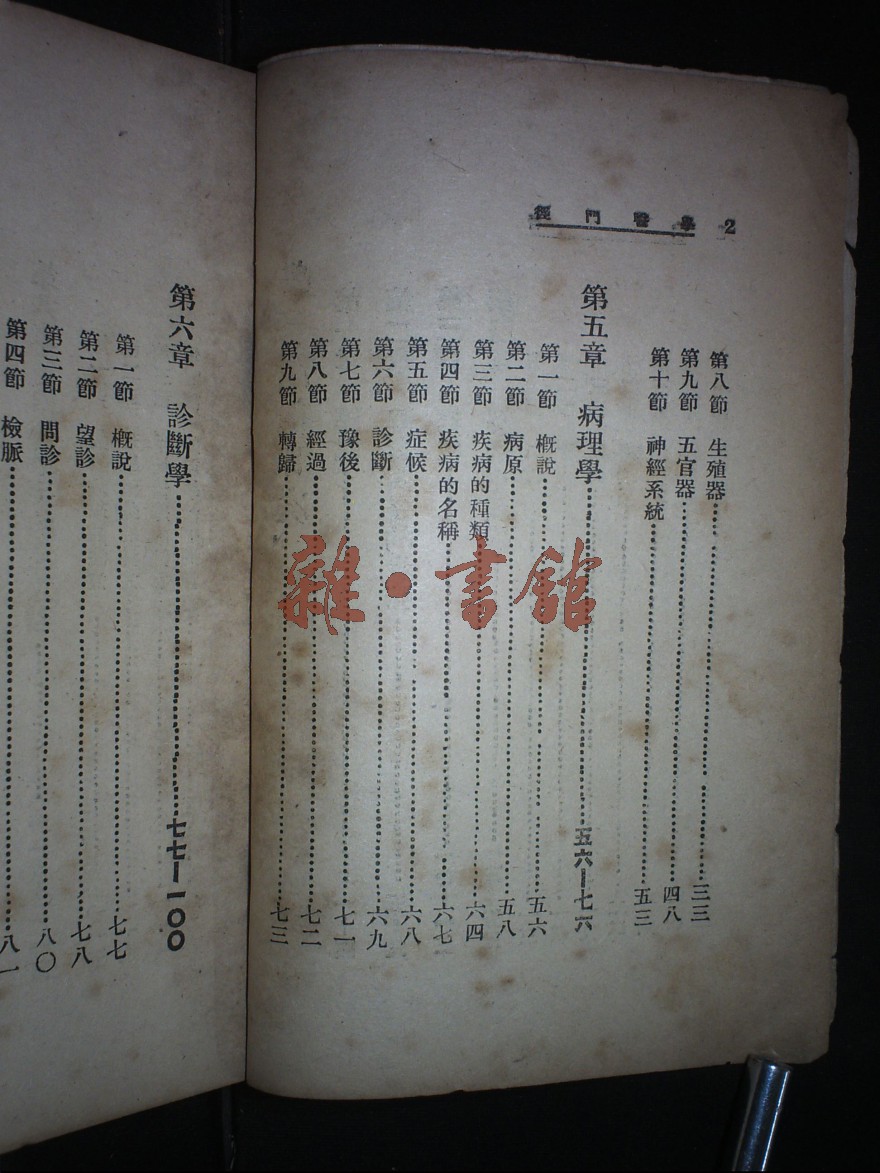 2 學醫門徑
第八節 生殖器……三三
第九節 五官器……四八
第十節 神經系統……五三
第五章 病理學……五六—七六
第一節 槪說……五六
第二節 病原……五八
第三節 疾病的種類……六四
第四節 疾病的名稱……六七
第五節 症候……六八
第六節 診斷……六九
第七節 豫後……七一
第八節 經過……七二
第九節 轉歸……七三
第六章 診斷學……七七—一〇〇
第一節 槪說……七七
第二節 望診……七八
第三節 問診……八〇
第四節 檢脈……八一
雜·書館